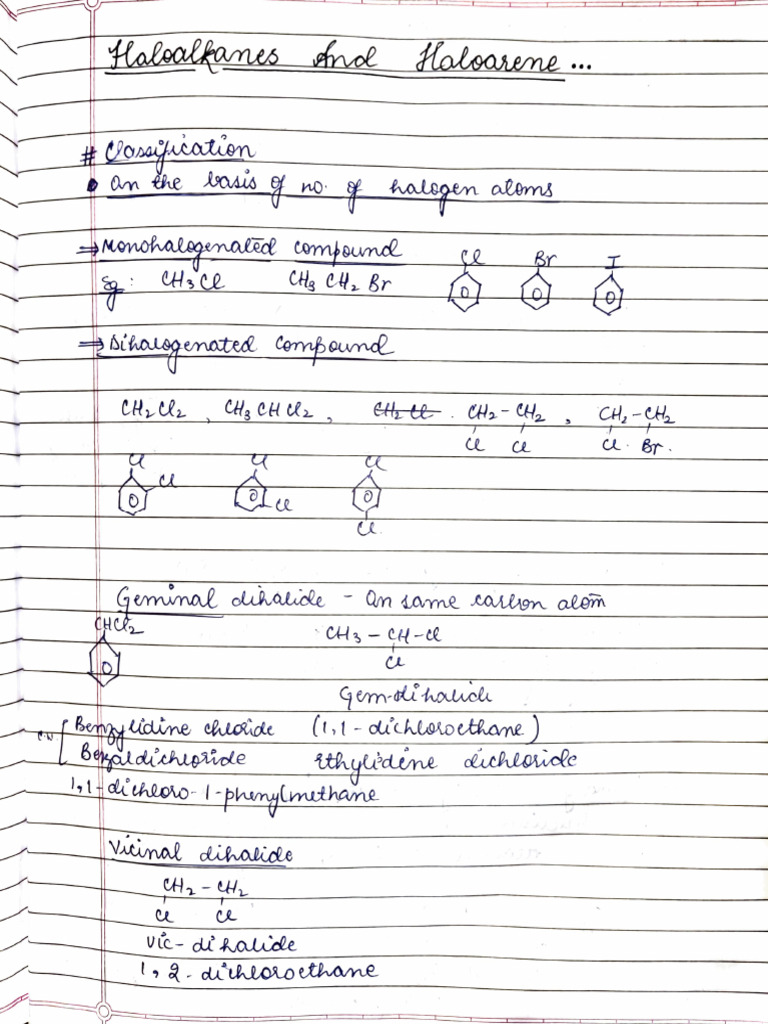 Haloalkanes And Haloarene...
# Classification
• On the basis of no. of halogen atoms
⇒ Monohalogenated compound
Eg: CH3Cl CH3 CH2 Br Cl Br I
⇒ Dihalogenated compound
CH2Cl2 , CH3CHCl2 , CH2 Cl . CH2-CH2 , CH2-CH2
Cl Cl Cl . Br.
Cl Cl Cl
Cl Cl Cl
Geminal dihalide - On same carbon atom
CHCl2 CH3 - CH-Cl
Cl
Gem-dihalide
C.N Benzylidine chloride (1,1-dichloroethane)
Benzaldichloride Ethylidene dichloride
1,1-dichloro-1-phenylmethane
Vicinal dihalide
CH2 - CH2
Cl Cl
vic-dihalide
1,2-dichloroethane